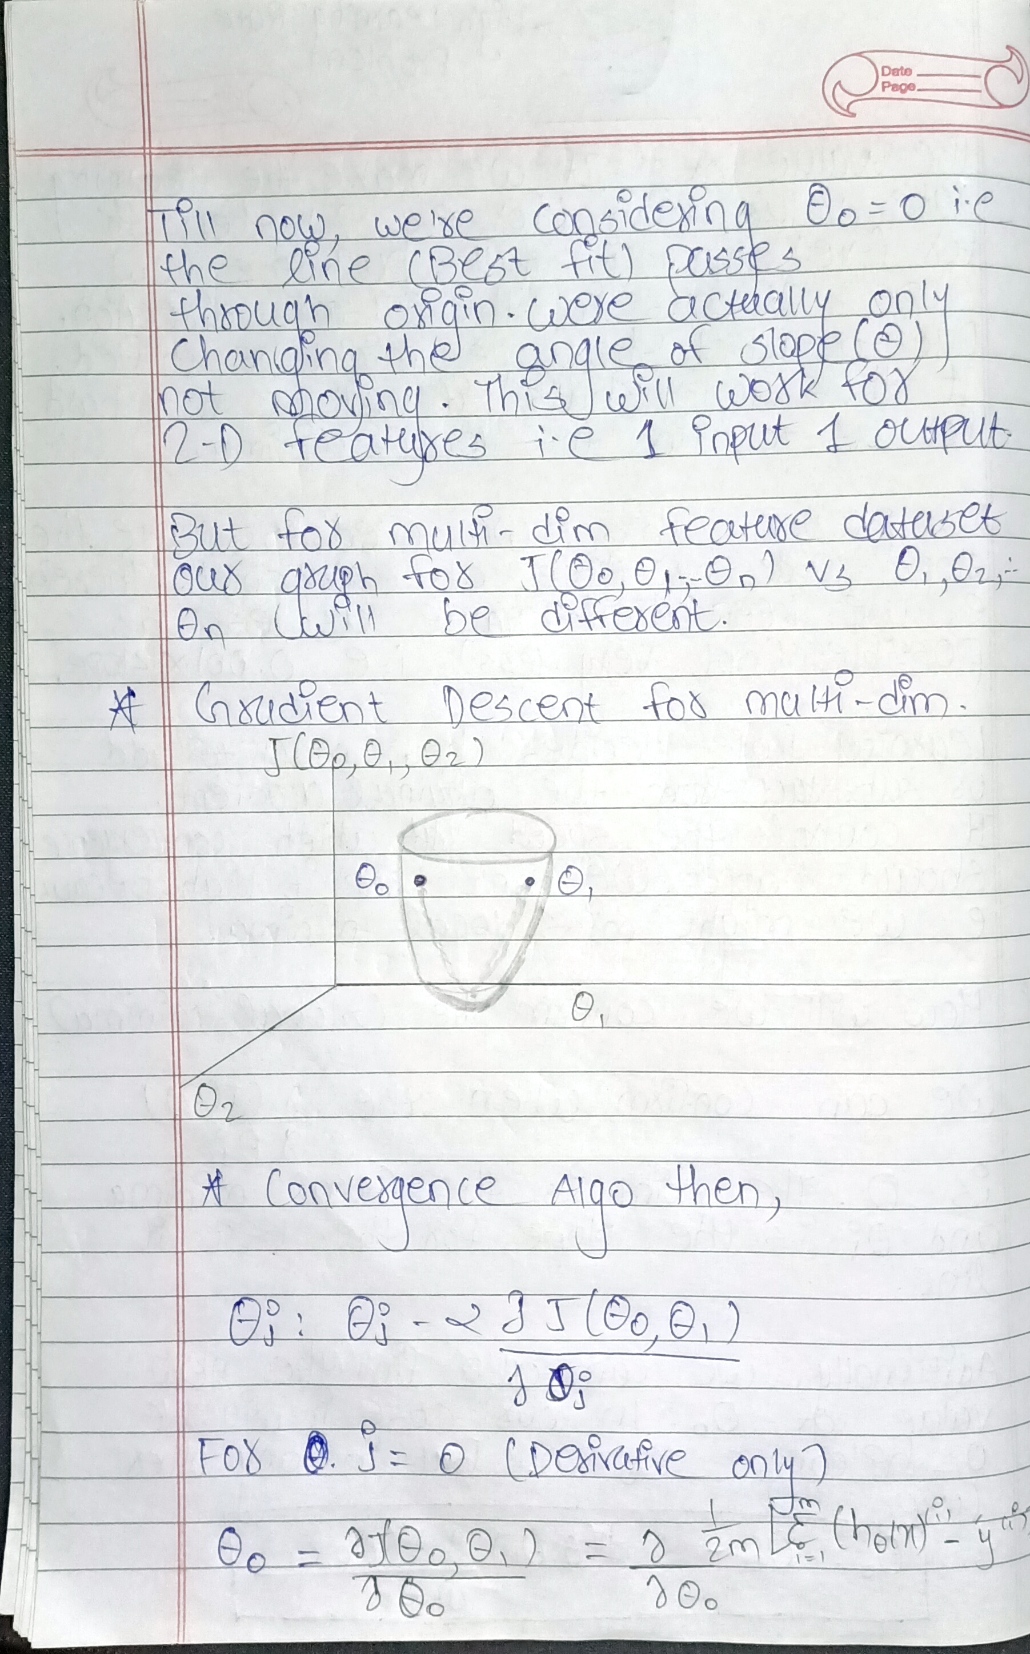 Date
Page
Till now, we're considering θ₀ = 0 i.e
the line (Best fit) passes
through origin. were actually only
Changing the angle of slope (θ)
not moving. This will work for
2-D features i.e 1 input 1 output.
But for multi-dim feature dataset
our graph for J(θ₀, θ₁,--θₙ) vs θ₁, θ₂,--
θn will be different.
* Gradient Descent for multi-dim.
J(θ₀, θ₁, θ₂)
θ₀ θ₁
θ₁
θ₂
* Convergence Algo then,
θj : θj - α ∂ J(θ₀, θ₁)
∂ θj
For θ. j = 0 (Derivative only)
θ₀ = ∂J(θ₀, θ₁) = ∂ 1/2m [ m Σ i=1 (hθ(x)⁽ⁱ⁾ - y⁽ⁱ⁾)
∂θ₀ ∂θ₀